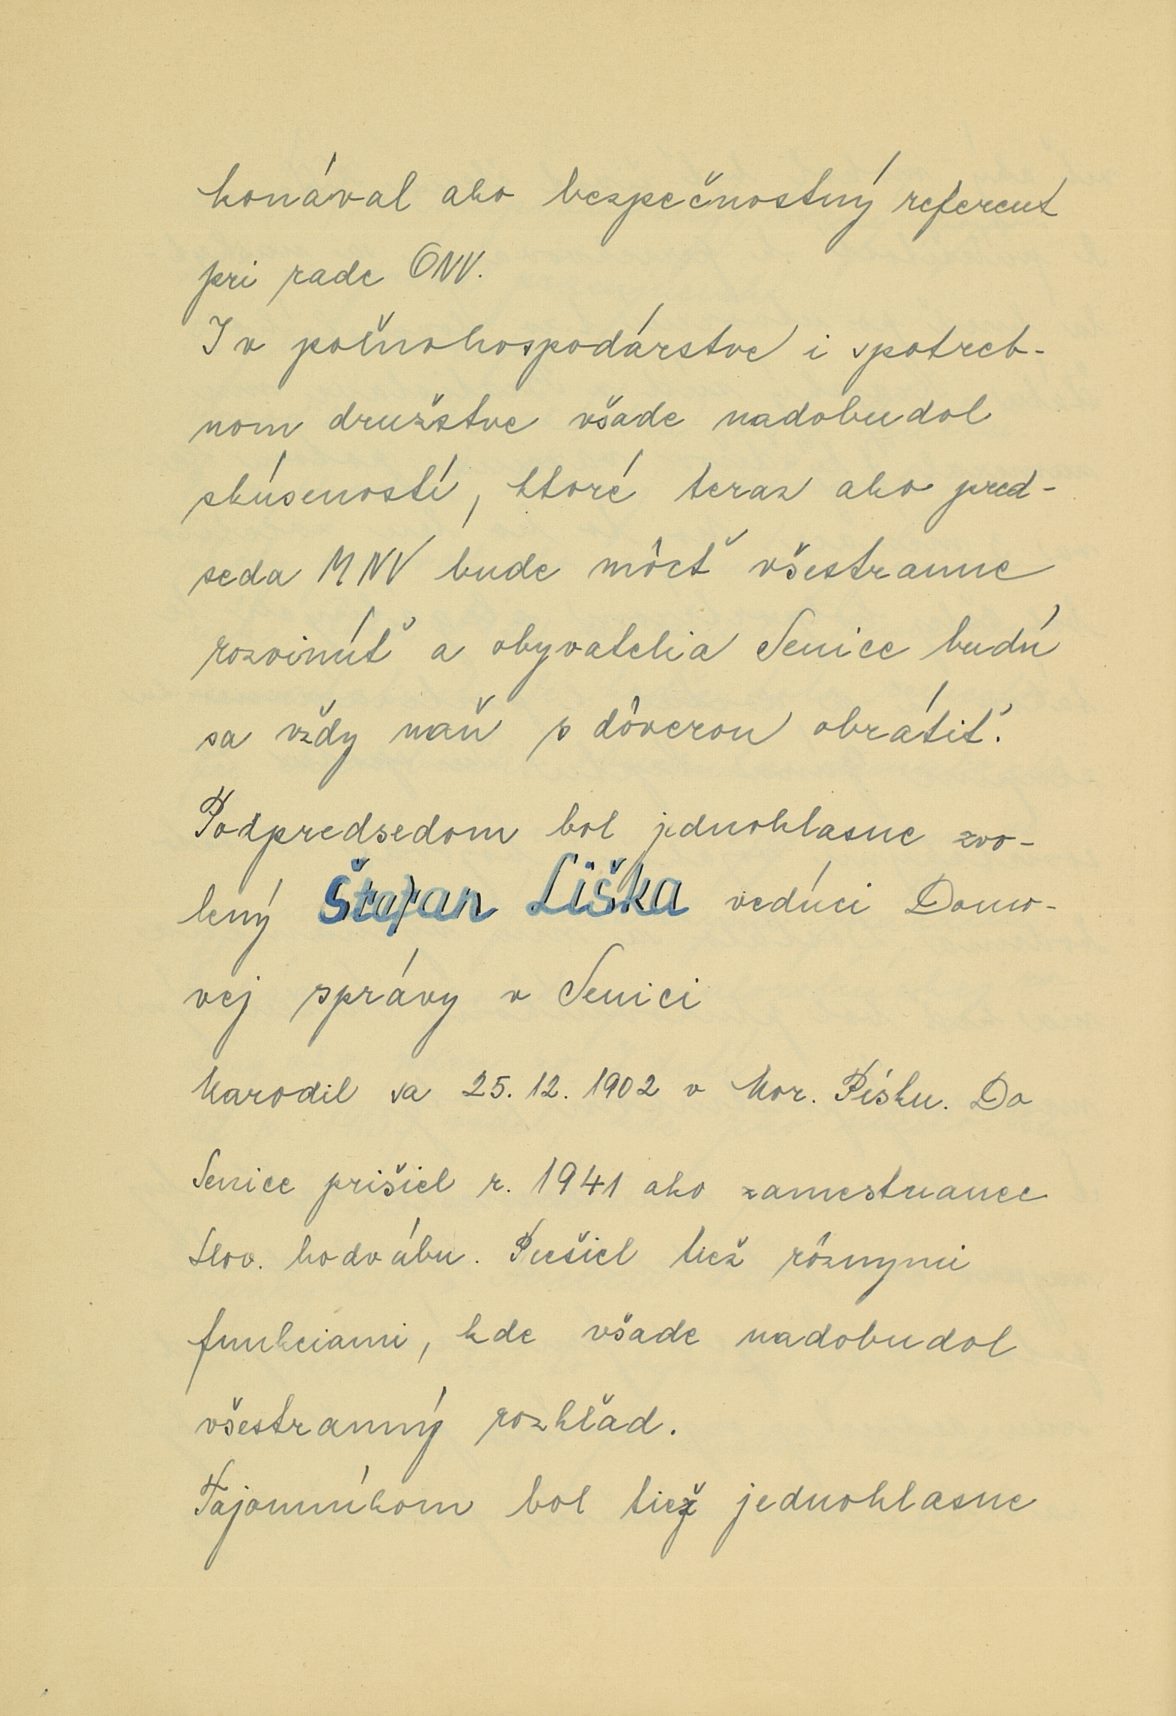 konával ako bezpečnostný referent
pri rade ONV.
I v poľnohospodárstve i spotreb-
nom družstve všade nadobudol
skúseností, ktoré teraz ako pred-
seda MNV bude môcť všestranne
rozvinúť a obyvatelia Senice budú
sa vždy naň s dôverou obrátiť.
Podpredsedom bol jednohlasne zvo-
lený Štefan Liška vedúci Domo-
vej správy v Senici
Narodil sa 25. 12. 1902 v Mor. Písku. Do
Senice prišiel r. 1941 ako zamestnanec
Slov. hodvábu. Prešiel tiež rôznymi
funkciami, kde všade nadobudol
všestranný rozhľad.
Tajomníkom bol tiež jednohlasne